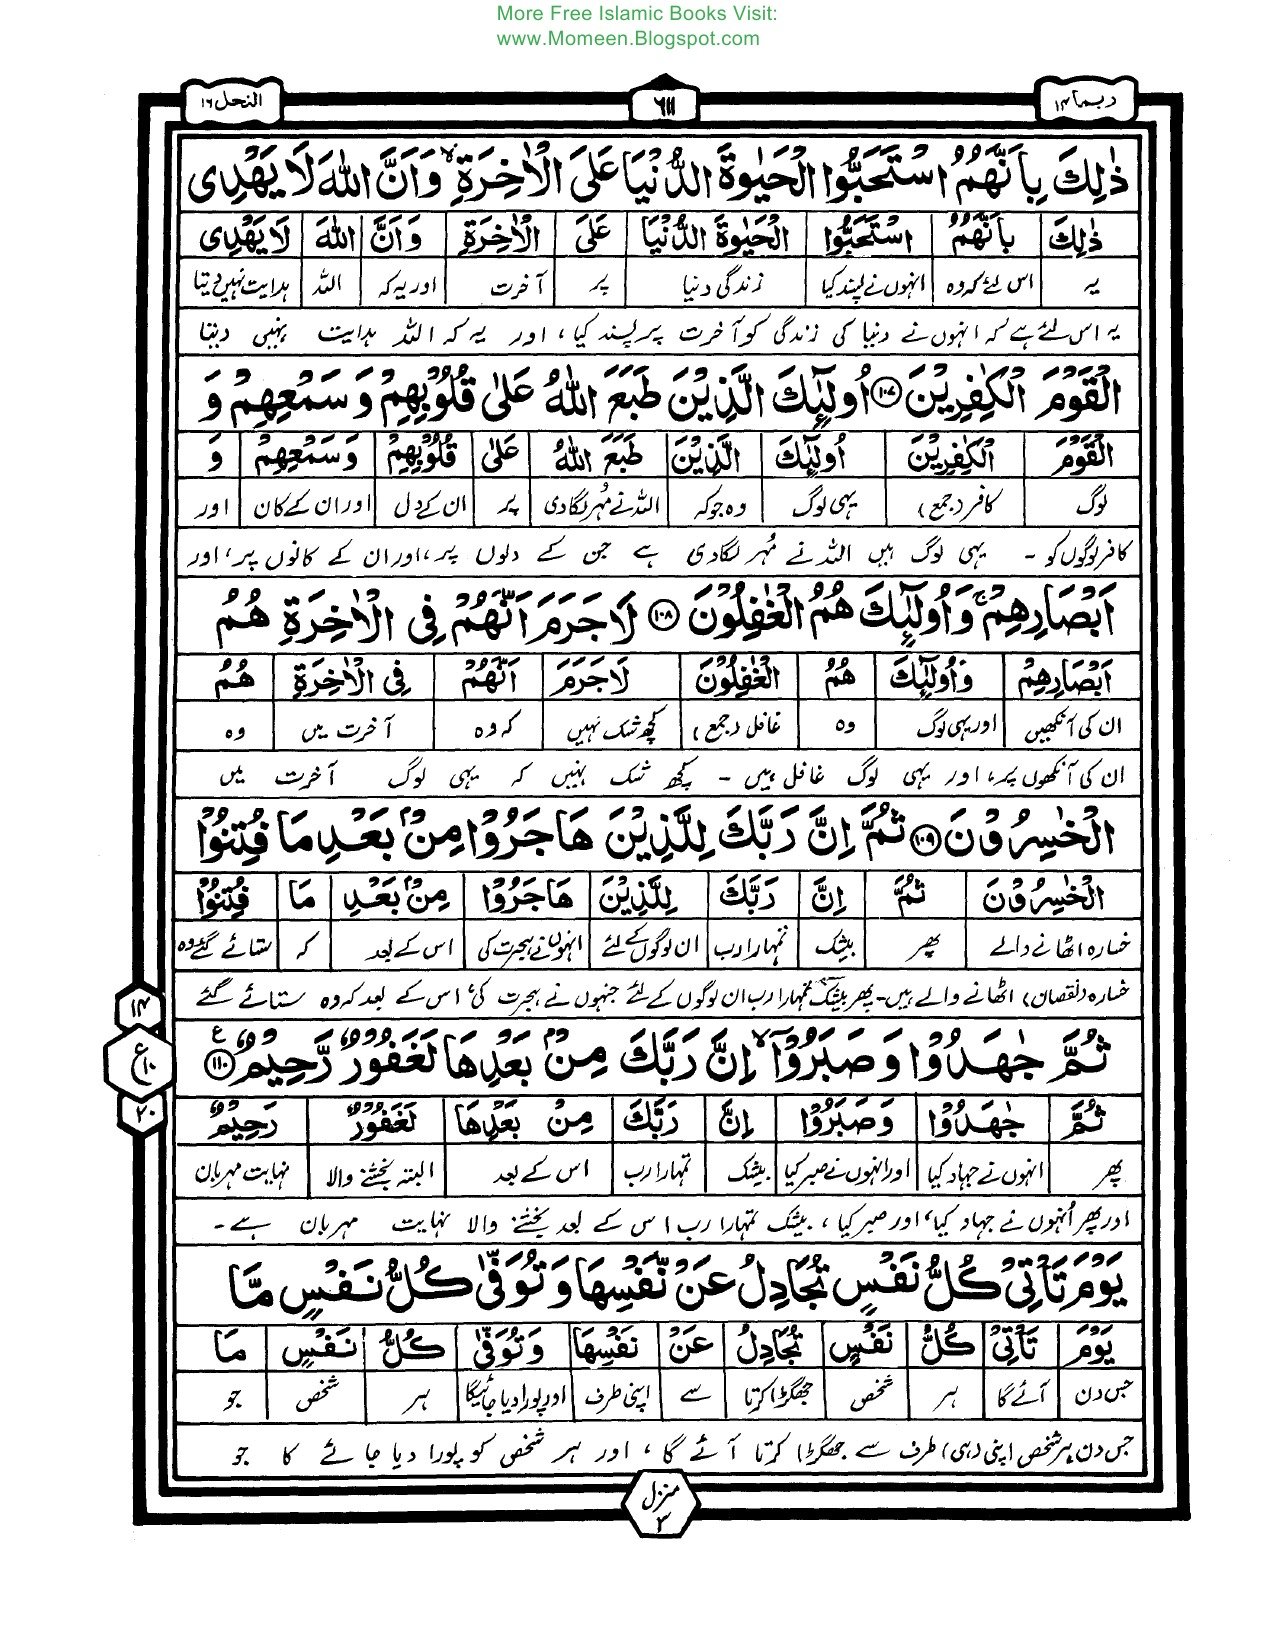 More Free Islamic Books Visit:
www.Momeen.Blogspot.com
ربما ۱۴
۶۱۱
النحل ۱۶
ذٰلِكَ بِاَنَّهُمُ اسْتَحَبُّوا الْحَيٰوةَ الدُّنْيَا عَلَى الْاٰخِرَةِ ۙ وَاَنَّ اللّٰهَ لَا يَهْدِى
ذٰلِكَ بِاَنَّهُمُ اسْتَحَبُّوا الْحَيٰوةَ الدُّنْيَا عَلَى الْاٰخِرَةِ وَاَنَّ اللّٰهَ لَا يَهْدِى
یہ اس لئے کہ وہ انہوں نے پسند کیا زندگی دنیا پر آخرت اور یہ کہ اللہ ہدایت نہیں دیتا
یہ اس لئے ہے کہ انہوں نے دنیا کی زندگی کو آخرت پر پسند کیا، اور یہ کہ اللہ ہدایت نہیں دیتا
الْقَوْمَ الْكٰفِرِيْنَ ۱۰۷ اُولٰٓئِكَ الَّذِيْنَ طَبَعَ اللّٰهُ عَلٰى قُلُوْبِهِمْ وَسَمْعِهِمْ وَ
الْقَوْمَ الْكٰفِرِيْنَ اُولٰٓئِكَ الَّذِيْنَ طَبَعَ اللّٰهُ عَلٰى قُلُوْبِهِمْ وَسَمْعِهِمْ وَ
لوگ کافر (جمع) یہی لوگ وہ جو کہ اللہ نے مُہر لگادی پر ان کے دل اور ان کے کان اور
کافر لوگوں کو - یہی لوگ ہیں اللہ نے مُہر لگادی ہے جن کے دلوں پر، اور ان کے کانوں پر، اور
اَبْصَارِهِمْ ۚ وَاُولٰٓئِكَ هُمُ الْغٰفِلُوْنَ ۱۰۸ لَا جَرَمَ اَنَّهُمْ فِى الْاٰخِرَةِ هُمُ
اَبْصَارِهِمْ وَاُولٰٓئِكَ هُمُ الْغٰفِلُوْنَ لَا جَرَمَ اَنَّهُمْ فِى الْاٰخِرَةِ هُمُ
ان کی آنکھیں اور یہی لوگ وہ غافل (جمع) کچھ شک نہیں کہ وہ آخرت میں وہ
ان کی آنکھوں پر، اور یہی لوگ غافل ہیں - کچھ شک نہیں کہ یہی لوگ آخرت میں
الْخٰسِرُوْنَ ۱۰۹ ثُمَّ اِنَّ رَبَّكَ لِلَّذِيْنَ هَاجَرُوْا مِنْۢ بَعْدِ مَا فُتِنُوْا
الْخٰسِرُوْنَ ثُمَّ اِنَّ رَبَّكَ لِلَّذِيْنَ هَاجَرُوْا مِنْۢ بَعْدِ مَا فُتِنُوْا
خسارہ اٹھانے والے پھر بیشک تمہارا رب ان لوگوں کے لئے انہوں نے ہجرت کی اس کے بعد کہ ستائے گئے وہ
خسارہ (نقصان) اٹھانے والے ہیں- پھر بیشک تمہارا رب ان لوگوں کے لئے جنہوں نے ہجرت کی، اس کے بعد کہ وہ ستائے گئے
۱۴
ع ۱۰
۲۰
ثُمَّ جٰهَدُوْا وَصَبَرُوْٓا ۙ اِنَّ رَبَّكَ مِنْۢ بَعْدِهَا لَغَفُوْرٌ رَّحِيْمٌ ۱۱۰ ع
ثُمَّ جٰهَدُوْا وَصَبَرُوْا اِنَّ رَبَّكَ مِنْ بَعْدِهَا لَغَفُوْرٌ رَحِيْمٌ
پھر انہوں نے جہاد کیا اور انہوں نے صبر کیا بیشک تمہارا رب اس کے بعد البتہ بخشنے والا نہایت مہربان
اور پھر اُنہوں نے جہاد کیا، اور صبر کیا، بیشک تمہارا رب اس کے بعد بخشنے والا نہایت مہربان ہے -
يَوْمَ تَاْتِىْ كُلُّ نَفْسٍ تُجَادِلُ عَنْ نَّفْسِهَا وَتُوَفّٰى كُلُّ نَفْسٍ مَّا
يَوْمَ تَاْتِىْ كُلُّ نَفْسٍ تُجَادِلُ عَنْ نَفْسِهَا وَتُوَفّٰى كُلُّ نَفْسٍ مَا
جس دن آئے گا ہر شخص جھگڑا کرتا سے اپنی طرف اور پورا دیا جائیگا ہر شخص جو
جس دن ہر شخص اپنی (ہی) طرف سے جھگڑا کرتا آئے گا، اور ہر شخص کو پورا دیا جائے گا جو
منزل
۳